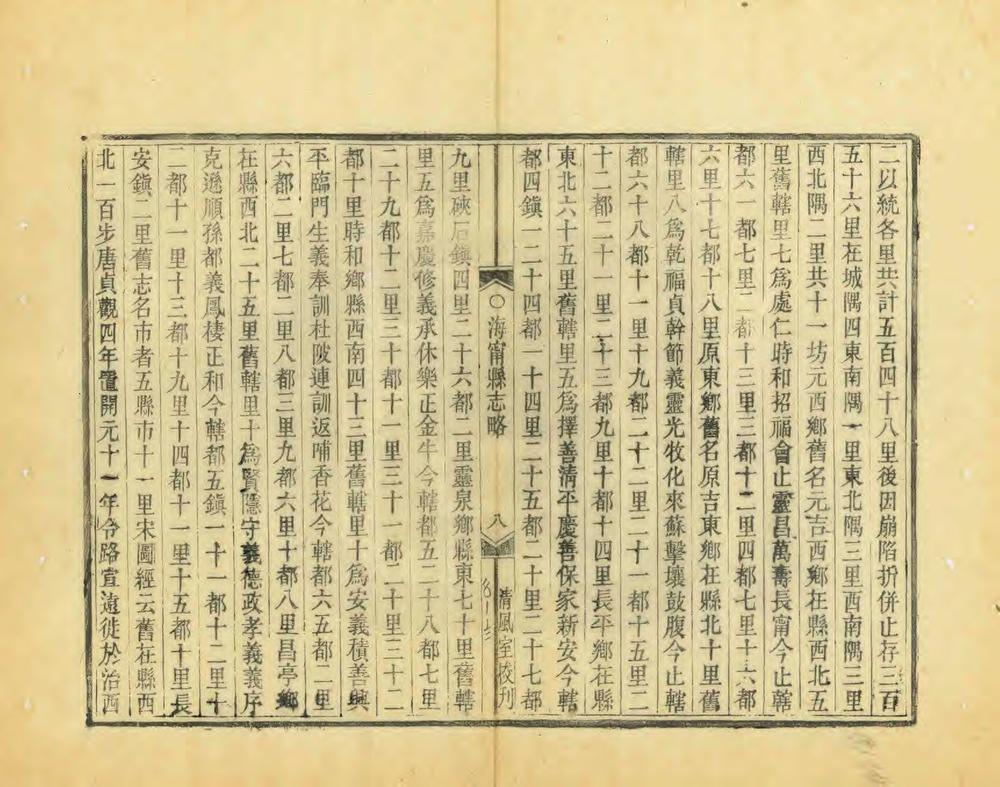 二以統各里共計五百四十八里後因崩陷折併止存三百
五十六里在城隅四東南隅一里東北隅三里西南隅二里
西北隅二里共十一坊元西鄉舊名元吉西鄉在縣西北五
里舊轄里七為處仁時和招福會止靈昌萬壽長甯今止轄
都六一都七里二都十三里三都十二里四都七里十六都
六里十七都十八里原東鄉舊名原吉東鄉在縣北十里舊
轄里八為乾福貞幹節義靈光牧化來蘇擊壤鼓腹今止轄
都六十八都十一里十九都二十二里二十一都十五里二
十二都二十一里二十三都九里十都十四里長平鄉在縣
東北六十五里舊轄里五為擇善清平慶善保家新安今轄
都四鎮一二十四都一十四里二十五都二十里二十七都
〇海甯縣志略 八 清風室校刊
九里硤石鎮四里二十六都二里靈泉鄉縣東七十里舊轄
里五為嘉慶修義承休樂正金牛今轄都五二十八都七里
二十九都十二里三十都十一里三十一都二十里三十二
都十里時和鄉縣西南四十三里舊轄里十為安義積善興
平臨門生義奉訓杜陂連訓返哺香花今轄都六五都二里
六都二里七都二里八都三里九都六里十都八里昌亭鄉
在縣西北二十五里舊轄里十為賢隱守義德政孝義義序
克遜順孫都義鳳棲正和今轄都五鎮一十一都十二里十
二都十一里十三都十九里十四都十一里十五都十里長
安鎮二里舊志名市者五縣市十一里宋圖經云舊在縣西
北一百步唐貞觀四年置開元十一年令路宣遠徙於治西